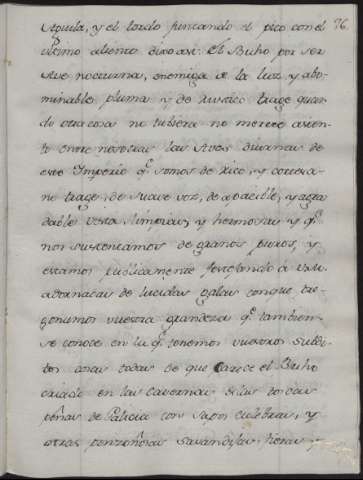 76
Aguila, y el tordo juntando el pico con el
ultimo aliento dixo asi: El Buho por ser
Ave nocturna, enemiga de la luz, y abo-
minable pluma y de rustico trage quan-
do otra cosa no tubiera no merece asien-
to entre nosotras las Aves diurnas de
este Imperio q.e somos de rico, y cortesa-
no trage, de suave voz, de apacible, y agra
dable vista limpias, y hermosas y q.e
nos sustentamos de granos puros, y
estamos publicamente festejando á
adornadas de lucidas galas con que
vuestra grandeza q.e tambien
se conoce en lo q.e tenemos vuestros subdi-
tos cosas todas de que carece el Buho
criado en las cavernas de las toscas
peñas de Galicia con sapos culebras, y
otras ponzoñosas savandijas fieras y